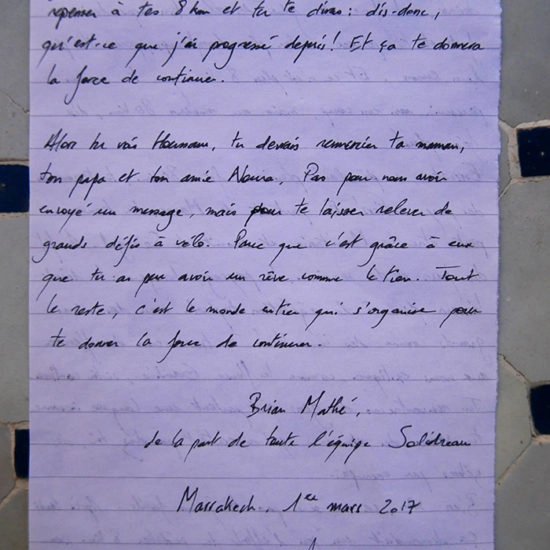 repenser à tes 8 km et tu te diras : dis-donc,
qu'est-ce que j'ai progressé depuis ! Et ça te donnera
la force de continuer.
Alors tu vois Houmam, tu devrais remercier ta maman,
ton papa et ton amie Noura. Pas pour nous avoir
envoyé un message, mais pour te laisser relever de
grands défis à vélo. Parce que c'est grâce à eux
que tu as pu avoir un rêve comme le tien. Tout
le reste, c'est le monde entier qui s'organise pour
te donner la force de continuer.
Brian Mathé,
de la part de toute l'équipe Solidream
Marrakech, 1er mars 2017